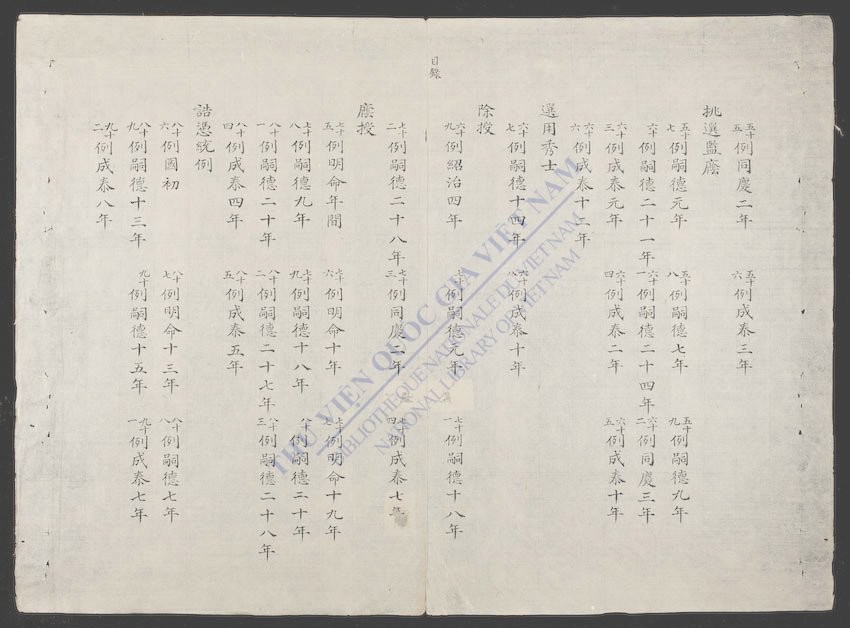 五十五例同慶二年 五十六例成泰三年
挑選監廕
五十七例嗣德元年 五十八例嗣德七年 五十九例嗣德九年
六十例嗣德二十一年 六十一例嗣德二十四年 六十二例同慶三年
六十三例成泰元年 六十四例成泰二年 六十五例成泰十年
六十六例成泰十二年
選用秀士
六十七例嗣德十四年 六十八例成泰十年
除授
六十九例紹治四年 七十例嗣德元年 七十一例嗣德十八年
目錄
七十二例嗣德二十八年 七十三例同慶二年 七十四例成泰七年
廕授
七十五例明命年間 七十六例明命十年 七十七例明命十九年
七十八例嗣德九年 七十九例嗣德十八年 八十例嗣德二十年
八十一例嗣德二十年 八十二例嗣德二十七年 八十三例嗣德二十八年
八十四例成泰四年 八十五例成泰五年
誥憑統例
八十六例國初 八十七例明命十三年 八十八例嗣德七年
八十九例嗣德十三年 九十例嗣德十五年 九十一例成泰七年
九十二例成泰八年
THƯ VIỆN QUỐC GIA VIỆT NAM
BIBLIOTHÈQUE NATIONALE DU VIETNAM
NATIONAL LIBRARY OF VIETNAM